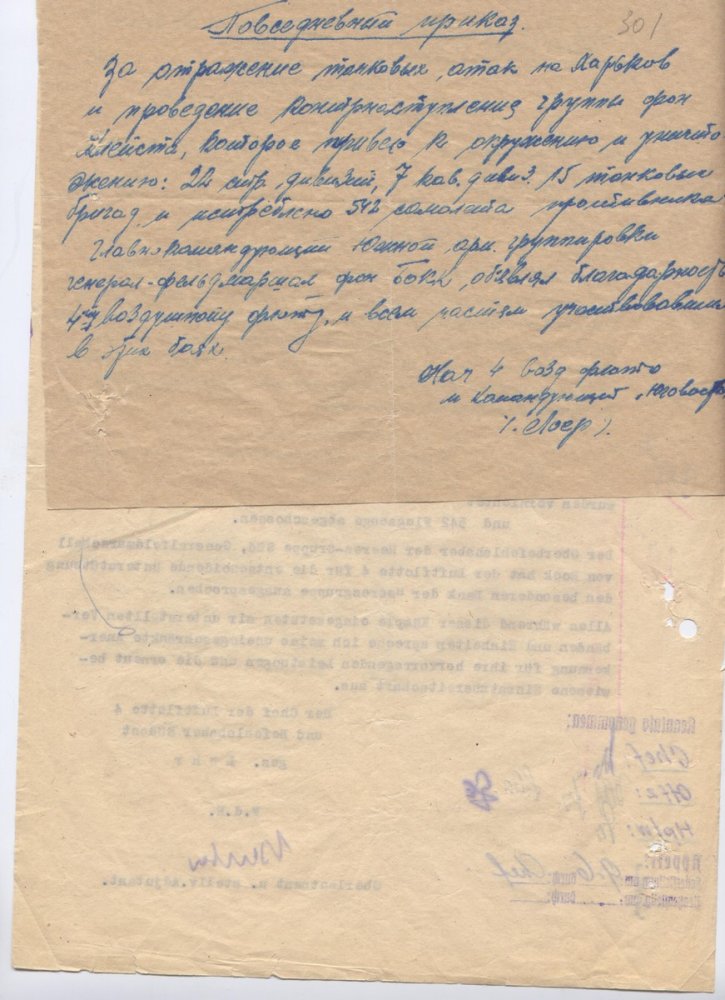 301
Повседневный приказ.
За отражение танковых атак на Харьков
и проведение контрнаступления группы фон
Клейста, которое привело к окружению и уничто
жению: 22 стр. дивизий, 7 кав. дивиз. 15 танковых
бригад и истреблено 542 самолёта противника
Главнокомандующий Южной арм. группировки
генерал-фельдмаршал фон Бокк объявлял благодарность
4му воздушному флоту, и всем частям участвовавшим
в этих боях.
Нач 4 возд флота
и командующий
/. Лоер /.
und 542 Flugzeuge abgeschossen.
Der Oberbefehlshaber der Heeresgruppe Süd, Generalfeldmarschall
von Bock hat der Luftflotte 4 für die entscheidende Unterstützung
den besonderen Dank der Heeresgruppe ausgesprochen.
Allen während dieser Kämpfe eingesetzten mir unterstellten Ver-
bänden und Einheiten spreche ich meine uneingeschränkte Aner-
kennung für ihre hervorragenden Leistungen und die erneut be-
wiesene Einsatzbereitschaft aus.
Der Chef der Luftflotte 4
und Befehlshaber Südost
gez. L ö h r
F.d.R.
Oberleutnant u. stellv. Adjutant.
Kenntnis genommen:
Chef:
Offz:
Hpfw:
Appell:
durch: Chef
durch: